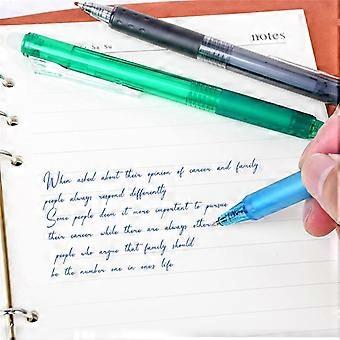 Sa Su
notes
When asked about their opinion of career and family
people always respond differently
Some people deem it more important to pursue
their career while there are always other
people who argue that family should
be the number one in ones life